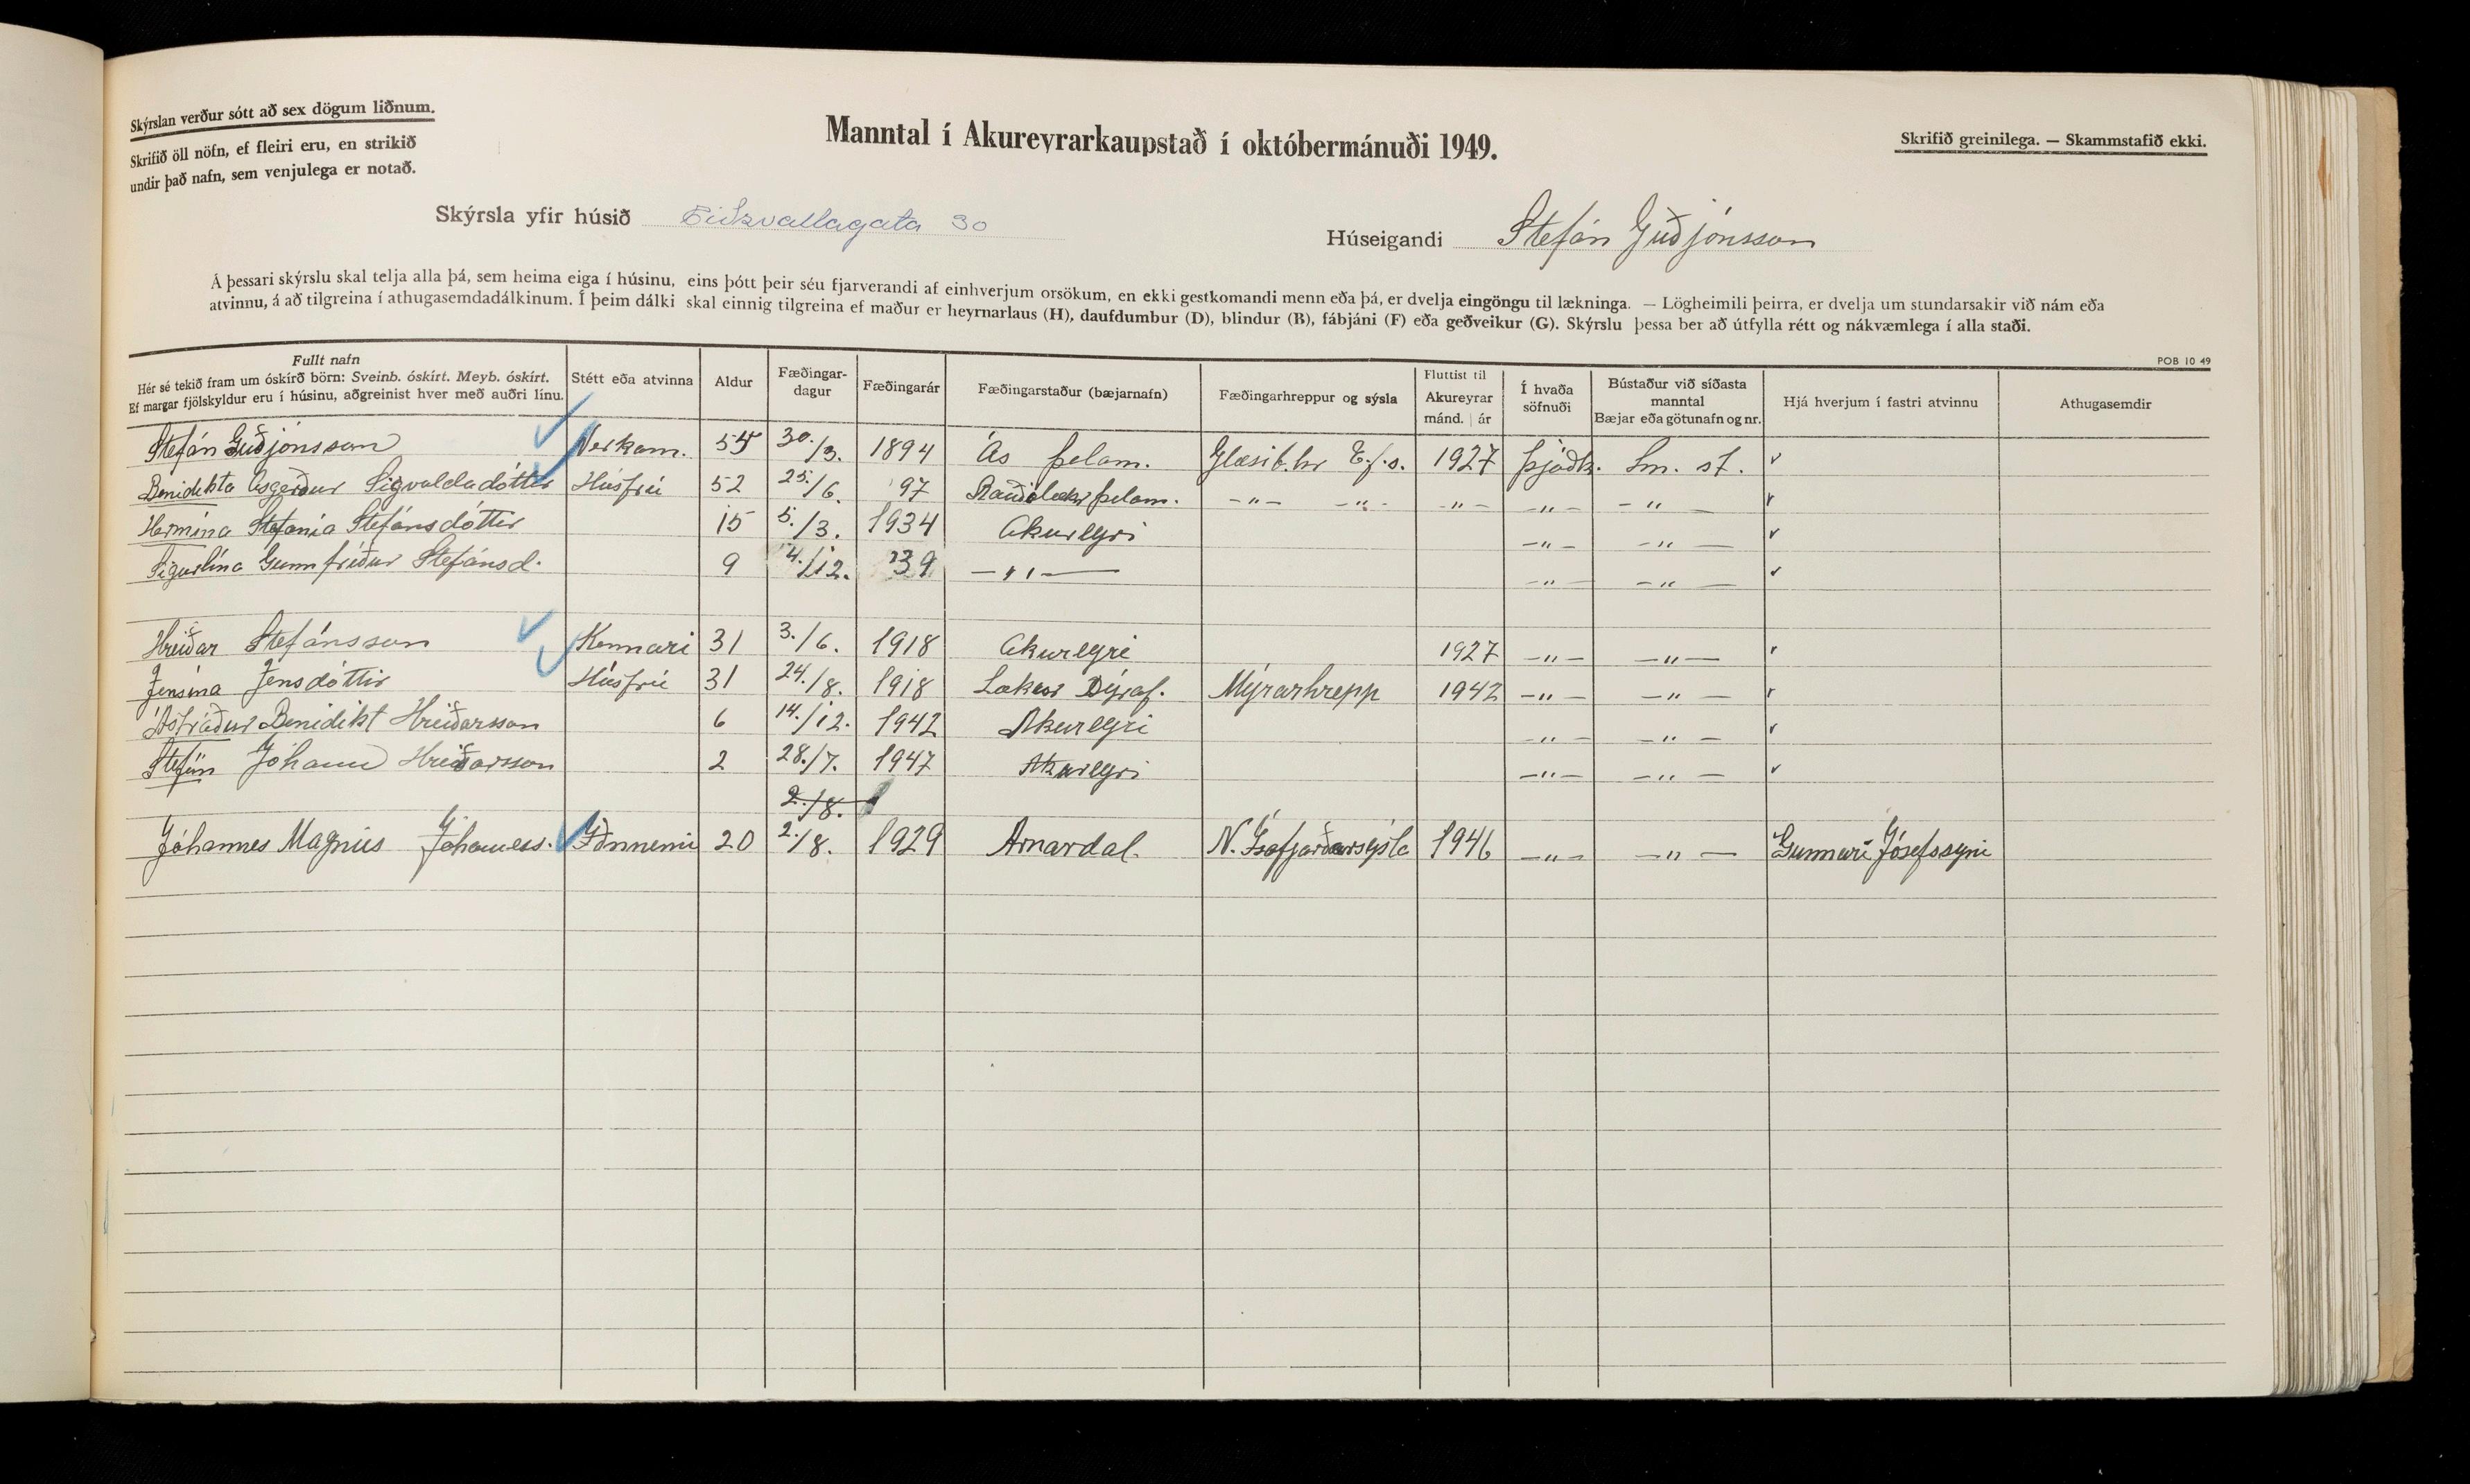 Skýrslan verður sótt að sex dögum liðnum.
Skrifið öll nöfn, ef fleiri eru, en strikið
undir það nafn, sem venjulega er notað.
Manntal í Akureyrarkaupstað í októbermánuði 1949.
Skrifið greinilega. — Skammstafið ekki.
Skýrsla yfir húsið Eiðsvallagata 30
Húseigandi Stefán Guðjónsson
Á þessari skýrslu skal telja alla þá, sem heima eiga í húsinu, eins þótt þeir séu fjarverandi af einhverjum orsökum, en ekki gestkomandi menn eða þá, er dvelja eingöngu til lækninga. — Lögheimili þeirra, er dvelja um stundarsakir við nám eða
atvinnu, á að tilgreina í athugasemdadálkinum. Í þeim dálki skal einnig tilgreina ef maður er heyrnarlaus (H), daufdumbur (D), blindur (B), fábjáni (F) eða geðveikur (G). Skýrslu þessa ber að útfylla rétt og nákvæmlega í alla staði.
POB 10 49
Fullt nafn
Hér sé tekið fram um óskírð börn: Sveinb. óskírt. Meyb. óskírt.
Ef margar fjölskyldur eru í húsinu, aðgreinist hver með auðri línu.
Stétt eða atvinna
Aldur
Fæðingar-
dagur
Fæðingarár
Fæðingarstaður (bæjarnafn)
Fæðingarhreppur og sýsla
Fluttist til
Akureyrar
mánd. | ár
Í hvaða
söfnuði
Bústaður við síðasta
manntal
Bæjar eða götunafn og nr.
Hjá hverjum í fastri atvinnu
Athugasemdir
Stefán Guðjónsson Verkam. 55 30./3. 1894 Ás Þelam. Glæsib.hr E.f.s. 1927 Þjóðk. Sm. st.
Benidikta Ásgerður Sigvaldadóttir Húsfrú 52 25./6. 97 Rauðalækr Þelam. -"- -"- -"- -"- -"-
Hermína Stefanía Stefánsdóttir 15 5./3. 1934 Akureyri -"- -"-
Sigurlína Gunnfríður Stefánsd. 9 4./12. '39 -"- -"- -"-
Hreiðar Stefánsson Kennari 31 3./6. 1918 Akureyri 1927 -"- -"-
Jensína Jensdóttir Húsfrú 31 24./8. 1918 Lækur Dýraf. Mýrarhrepp 1942 -"- -"-
Ástráður Benidikt Hreiðarsson 6 14./12. 1942 Akureyri -"- -"-
Stefán Jóhann Hreiðarsson 2 28./7. 1947 Akureyri -"- -"-
2./8.
Jóhannes Magnús Jóhanness. Iðnnemi 20 2./8. 1929 Arnardal. N. Ísafjarðarsýsla 1946 -"- -"- Gunnari Jósefssyni